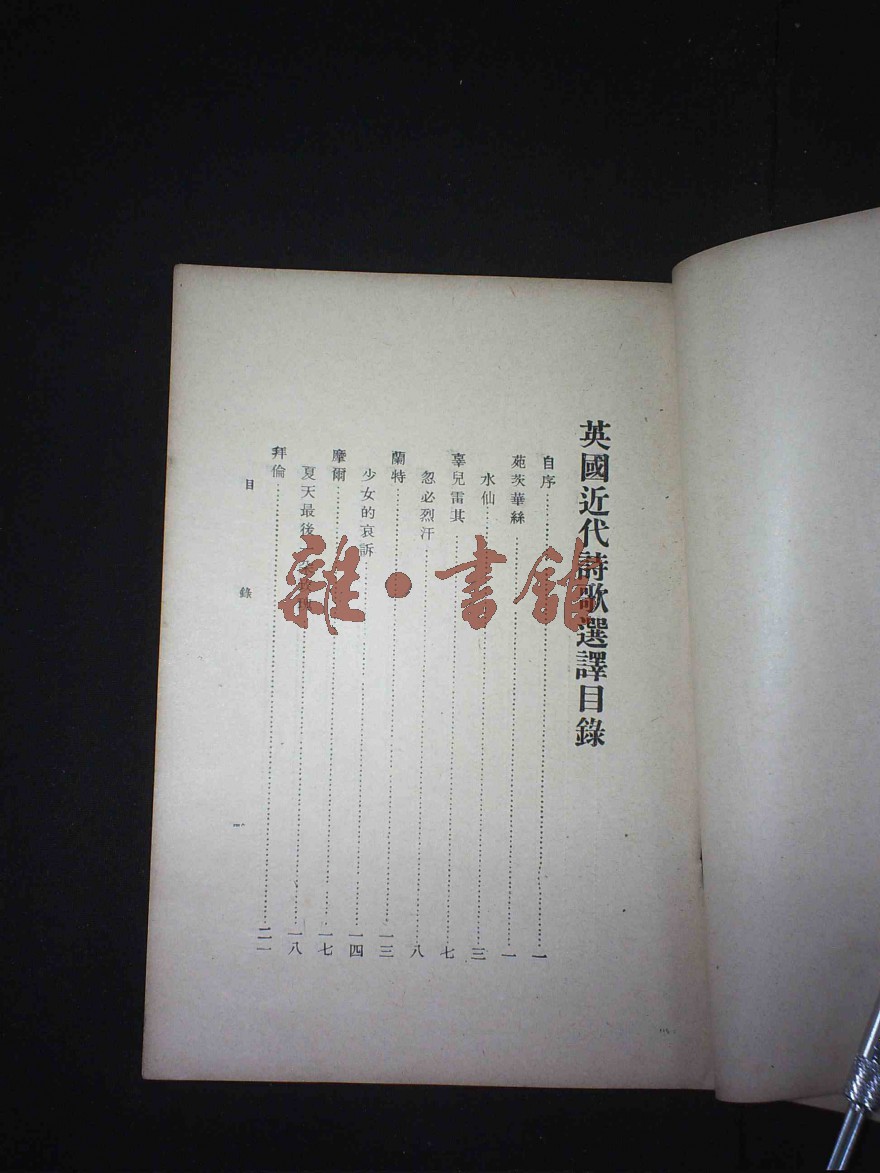 英國近代詩歌選譯目錄
自序……一
苑茨華絲……一
水仙……三
辜兒雷其……七
忽必烈汗……八
蘭特……一三
少女的哀訴……一四
摩爾……一七
夏天最後……一八
拜倫……二一
目錄
一
雜·書館